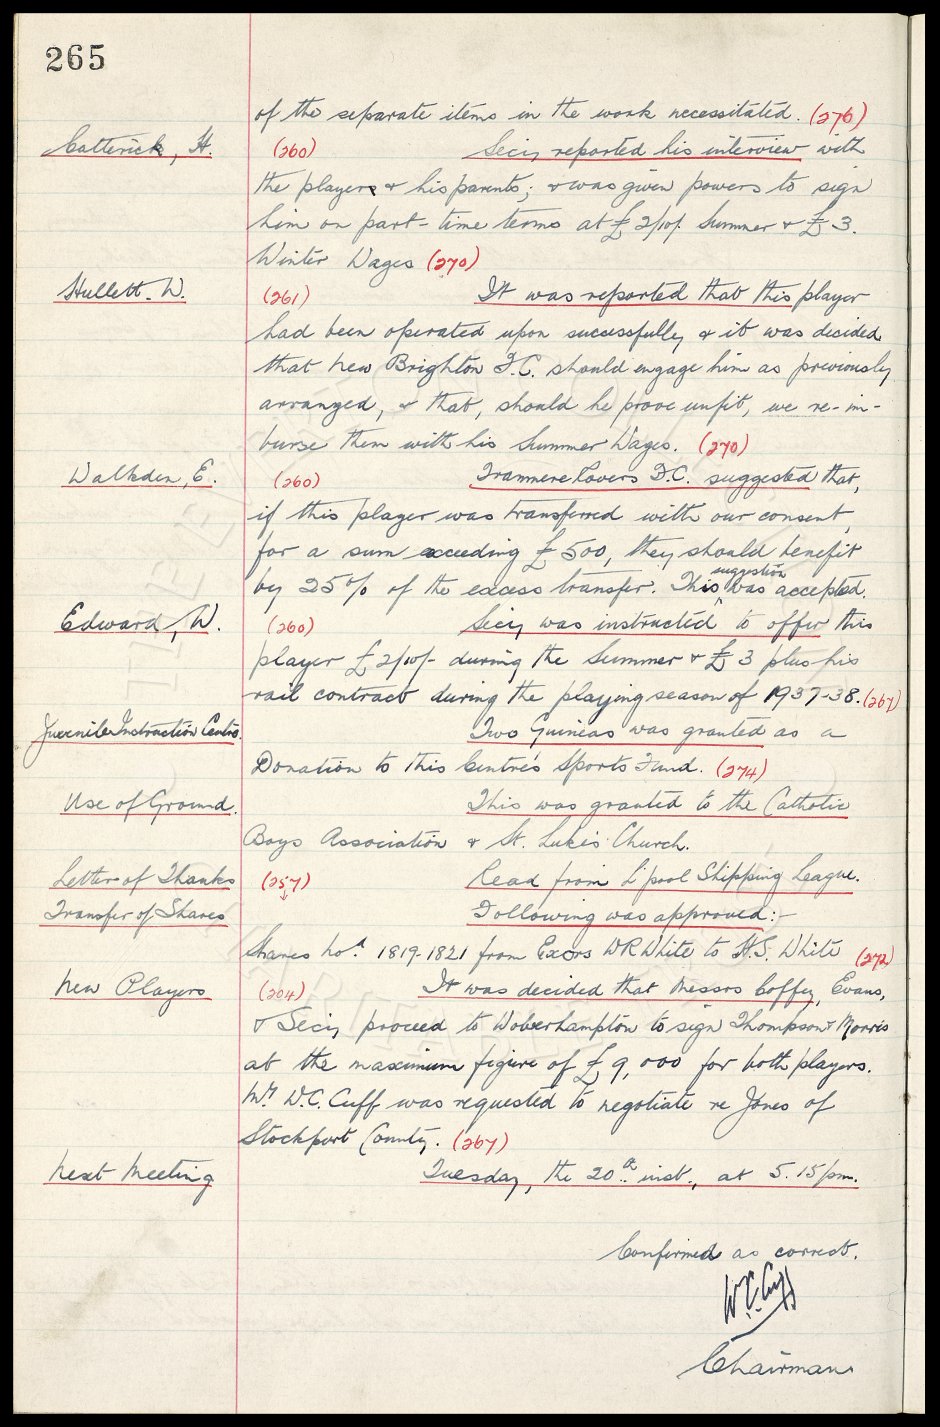 265
of the separate items in the work necessitated. (276)
Catterick, H. (260) Secy reported his interview with
the players & his parents; & was given powers to sign
him on part-time terms at £2/10/- Summer & £3.
Winter Wages (270)
Hullett. W. (261) It was reported that this player
had been operated upon successfully & it was decided
that New Brighton F.C. should engage him as previously
arranged, & that, should he prove unfit, we re-im-
burse them with his Summer Wages. (270)
Walkden, E. (260) Tranmere Rovers F.C. suggested that,
if this player was transferred with our consent,
for a sum exceeding £500, they should benefit
by 25% of the excess transfer. This suggestion was accepted.
Edward, W. (260) Secy was instructed to offer this
player £2/10/- during the Summer & £3 plus his
rail contract during the playing season of 1937-38. (267)
Juvenile Instruction Centre. Two Guineas was granted as a
Donation to this Centre's Sports Fund. (274)
Use of Ground. This was granted to the Catholic
Boys Association & St. Luke's Church.
Letter of Thanks (257) Read from L'pool Shipping League.
Transfer of Shares Following was approved:-
Shares nos. 1819-1821 from Exors W R White to H.S. White (272)
New Players (204) It was decided that Messrs Coffey, Evans,
& Secy proceed to Woverhampton to sign Thompson & Morris
at the maximum figure of £9,000 for both players.
Mr. W.C. Cuff was requested to negotiate re Jones of
Stockport County. (267)
Next Meeting Tuesday, the 20th inst., at 5.15 pm.
Confirmed as correct.
W.C. Cuff
Chairman